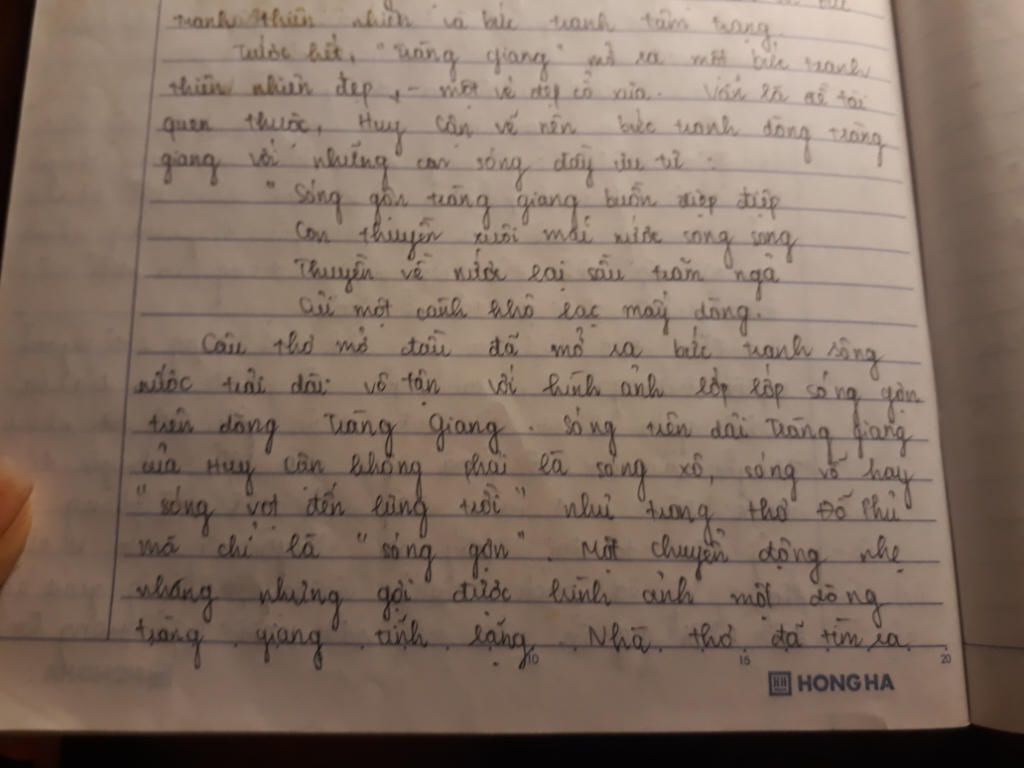 tranh thiên nhiên và bức tranh tâm trạng.
Trước hết, "Tràng giang" mở ra một bức tranh
thiên nhiên đẹp, - một vẻ đẹp cổ xưa. Vẫn là đề tài
quen thuộc, Huy Cận vẽ nên bức tranh dòng tràng
giang với những con sóng đầy ưu tư :
"Sóng gợn tràng giang buồn điệp điệp
Con thuyền xuôi mái nước song song
Thuyền về nước lại sầu trăm ngả
Củi một cành khô lạc mấy dòng.
Câu thơ mở đầu đã mở ra bức tranh sông
nước trải dài vô tận với hình ảnh lớp lớp sóng gợn
trên dòng Tràng Giang. Sóng trên dải Tràng giang
của Huy Cận không phải là sóng xô, sóng vỗ hay
"sóng vọt đến lưng trời" như trong thơ Đỗ Phủ
mà chỉ là "sóng gợn". Một chuyển động nhẹ
nhàng nhưng gợi được hình ảnh một dòng
tràng giang tĩnh lặng. Nhà thơ đã tìm ra
10 15 20
HONG HA